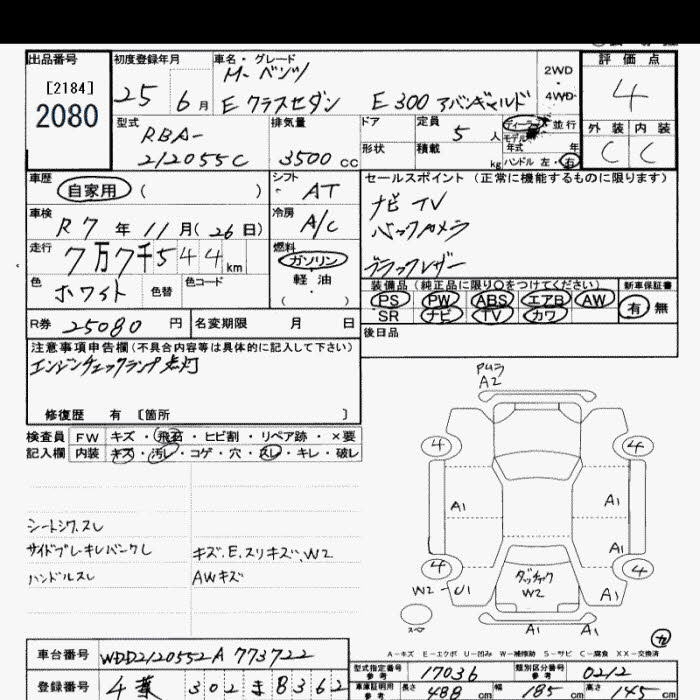 出品番号
[2184]
2080
初度登録年月
25 年 6 月
車名・グレード
M・ベンツ
Eクラスセダン E300 アバンギャルド
2WD
4WD
評価点
4
外装 内装
C C
型式
RBA-
212055C
排気量
3500 cc
ドア
形状
定員
5 人
積載
kg
ディーラー 並行
モデル
年式 年
ハンドル 左・右
車歴
自家用 ( )
シフト
AT
車検
R7 年 11 月 (26 日)
冷房
A/C
走行
7万7千544 km
燃料
ガソリン・軽油・
( )
色
ホワイト
色替
色コード
R券 25080 円
名変期限 月 日
セールスポイント (正常に機能するものに限ります)
ナビ TV
バックカメラ
ブラックレザー
装備品 (純正品に限り○をつけてください)
PS PW ABS エアB AW
SR ナビ TV カワ
新車保証書
有 無
後日品
注意事項申告欄 (不具合内容等は具体的に記入して下さい)
エンジンチェックランプ点灯
修復歴 有 [箇所 ]
検査員
記入欄
FW キズ・飛石・ヒビ割・リペア跡・×要
内装 キズ・汚レ・コゲ・穴・スレ・キレ・破レ
シートシワ、スレ
サイドブレーキレバーメクレ
ハンドルスレ
キズ、E、スリキズ、W2
AWキズ
A2
4 4
A1 A1
A1
4 4
W2-U1
W2
A1
スペ
A1 A1
A-キズ E-エクボ U-凹み W-補修跡 S-サビ C-腐食 XX-交換済
車台番号 WDD2120552A773722
登録番号
302 8362
型式指定番号
参考
17036
類別区分番号
参考
0212
車庫証明用
参考
長さ 488 cm 幅 185 cm 高さ 145 cm